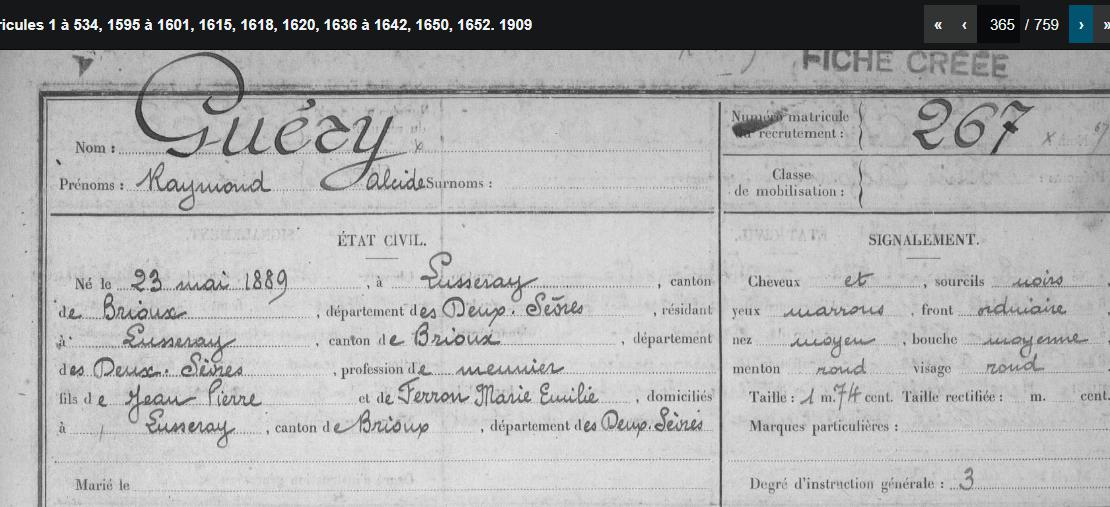 ricules 1 à 534, 1595 à 1601, 1615, 1618, 1620, 1636 à 1642, 1650, 1652. 1909
« ‹ 365 / 759 › »
FICHE CRÉÉE
Nom : Guéry
Prénoms : Raymond Alcide Surnoms :
Numéro matricule du recrutement : 267
Classe de mobilisation :
ÉTAT CIVIL.
Né le 23 mai 1889, à Lusseray, canton
de Brioux, département des Deux-Sèvres, résidant
à Lusseray, canton de Brioux, département
des Deux-Sèvres, profession de meunier
fils de Jean Pierre et de Ferron Marie Emilie, domiciliés
à Lusseray, canton de Brioux, département des Deux-Sèvres
Marié le
SIGNALEMENT.
Cheveux et, sourcils noirs
yeux marrons, front ordinaire,
nez moyen, bouche moyenne
menton rond visage rond
Taille : 1 m. 74 cent. Taille rectifiée : m. cent.
Marques particulières :
Degré d'instruction générale : 3